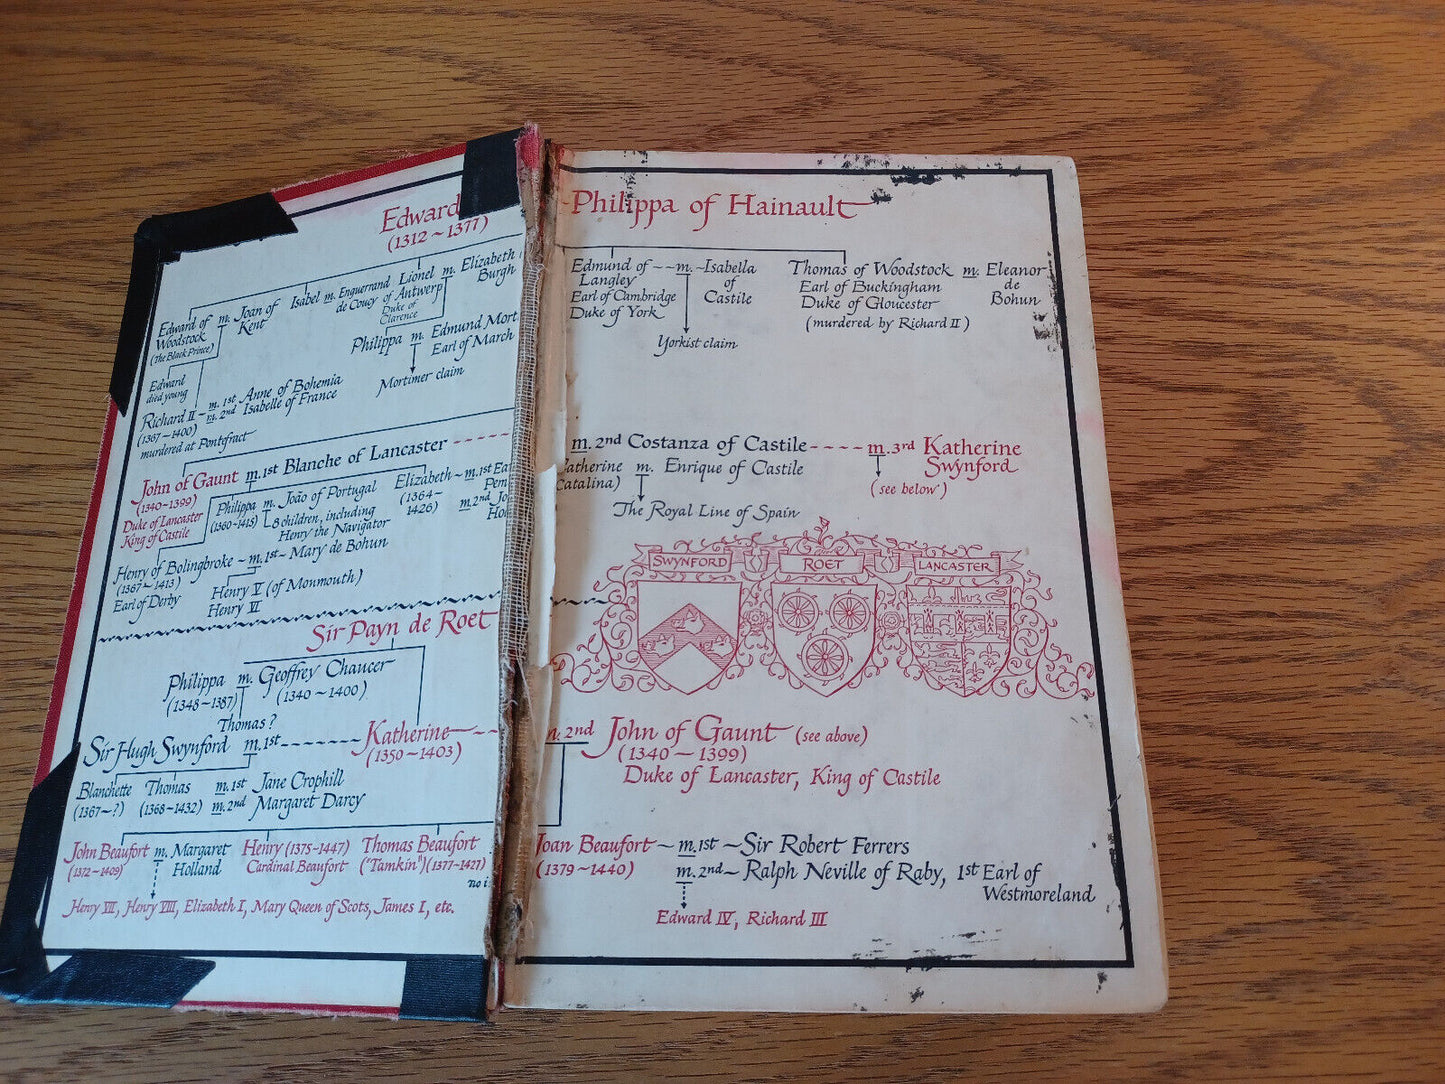 Edward
(1312~1377)
Edward of
Woodstock
(the Black Prince)
m. Joan of
Kent
Isabel m. Enguerrand
de Coucy
Lionel
of Antwerp
Duke of
Clarence
m. Elizabeth
Burgh
Philippa m. Edmund Mort
Earl of March
Mortimer claim
Edward
died young
Richard II
(1367~1400)
murdered at Pontefract
m. 1st Anne of Bohemia
m. 2nd Isabelle of France
John of Gaunt
(1340~1399)
Duke of Lancaster
King of Castile
m. 1st Blanche of Lancaster
Philippa
(1360~1415)
m. João of Portugal
8 children, including
Henry the Navigator
Elizabeth
(1364~
1426)
m. 1st Ea
Pen
m. 2nd Jo
Ho
Henry of Bolingbroke
(1367~1413)
Earl of Derby
m. 1st Mary de Bohun
Henry V (of Monmouth)
Henry VI
Sir Payn de Roet
Philippa
(1348~1387)
m. Geoffrey Chaucer
(1340~1400)
Thomas?
Sir Hugh Swynford m. 1st
Katherine
(1350~1403)
Blanchette
(1367~?)
Thomas
(1368~1432)
m. 1st Jane Crophill
m. 2nd Margaret Darcy
John Beaufort
(1372~1409)
m. Margaret
Holland
Henry (1375~1447)
Cardinal Beaufort
Thomas Beaufort
("Tamkin") (1377~1427)
no i
Henry VII, Henry VIII, Elizabeth I, Mary Queen of Scots, James I, etc.
Philippa of Hainault
Edmund of
Langley
Earl of Cambridge
Duke of York
m. Isabella
of
Castile
Yorkist claim
Thomas of Woodstock
Earl of Buckingham
Duke of Gloucester
(murdered by Richard II)
m. Eleanor
de
Bohun
m. 2nd Costanza of Castile
m. 3rd Katherine
Swynford
(see below)
Catherine
Catalina)
m. Enrique of Castile
The Royal Line of Spain
SWYNFORD
ROET
LANCASTER
m. 2nd John of Gaunt (see above)
(1340~1399)
Duke of Lancaster, King of Castile
Joan Beaufort
(1379~1440)
m. 1st Sir Robert Ferrers
m. 2nd Ralph Neville of Raby, 1st Earl of
Westmoreland
Edward IV, Richard III